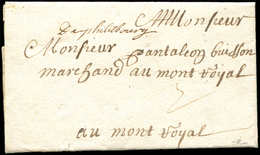 A Monsieur
De philisbourg
Monsieur pantaleon buisson
marchand au mont royal
au mont royal